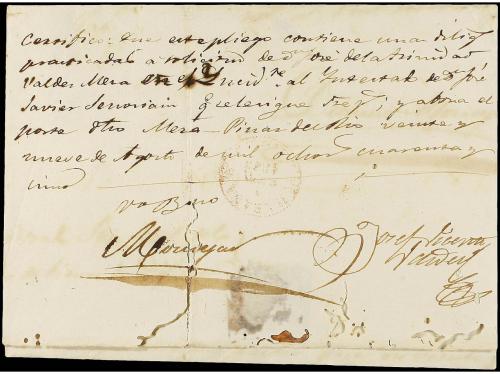 Certifico: Que este pliego contiene unas dilig
practicadas a solicitud de Dn José de la Trinidad
Valdes Mera en el al Intestado de Dn José
Javier y abona el
porte dho Mera. Pinar del Rio veinte y
nueve de Agosto de mil ochos cuarenta y
cinco
Vo Bno
Josef Vicente
Valdes